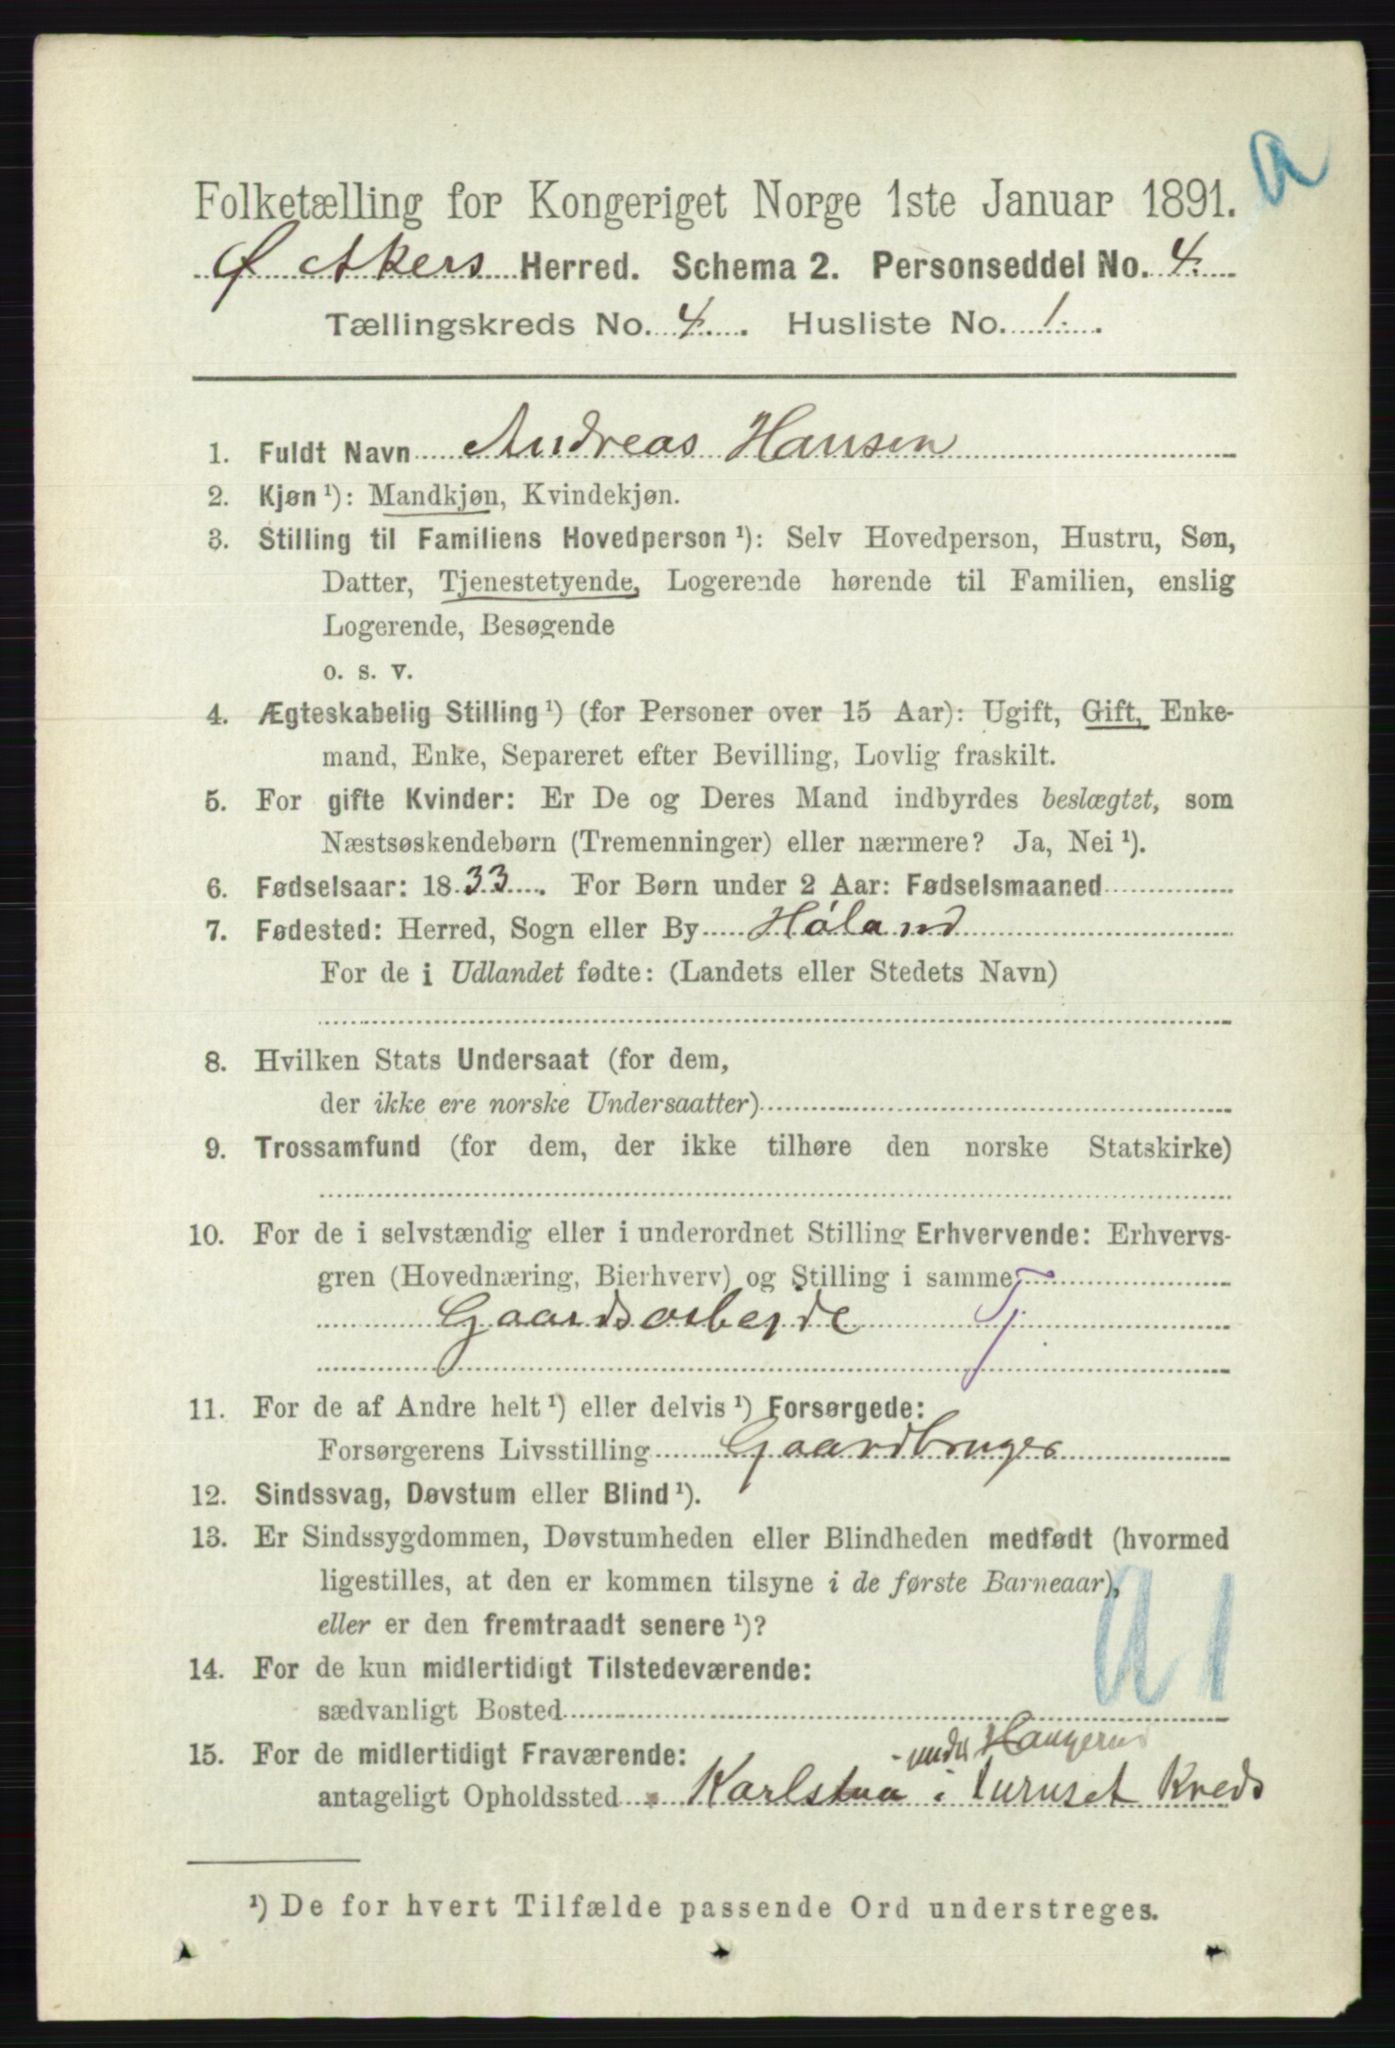 a
Folketælling for Kongeriget Norge 1ste Januar 1891.
Ø Akers Herred. Schema 2. Personseddel No. 4.
Tællingskreds No. 4. Husliste No. 1.
1. Fuldt Navn Andreas Hansen
2. Kjøn ¹): Mandkjøn, Kvindekjøn.
3. Stilling til Familiens Hovedperson ¹): Selv Hovedperson, Hustru, Søn,
Datter, Tjenestetyende, Logerende hørende til Familien, enslig
Logerende, Besøgende
o. s. v.
4. Ægteskabelig Stilling ¹) (for Personer over 15 Aar): Ugift, Gift, Enke-
mand, Enke, Separeret efter Bevilling, Lovlig fraskilt.
5. For gifte Kvinder: Er De og Deres Mand indbyrdes beslægtet, som
Næstsøskendebørn (Tremenninger) eller nærmere? Ja, Nei ¹).
6. Fødselsaar: 1833. For Børn under 2 Aar: Fødselsmaaned
7. Fødested: Herred, Sogn eller By Høland
For de i Udlandet fødte: (Landets eller Stedets Navn)
8. Hvilken Stats Undersaat (for dem,
der ikke ere norske Undersaatter)
9. Trossamfund (for dem, der ikke tilhøre den norske Statskirke)
10. For de i selvstændig eller i underordnet Stilling Erhvervende: Erhvervs-
gren (Hovednæring, Bierhverv) og Stilling i samme
Gaardsarbejde T.
11. For de af Andre helt ¹) eller delvis ¹) Forsørgede:
Forsørgerens Livsstilling Gaardbruger
12. Sindssvag, Døvstum eller Blind ¹).
13. Er Sindssygdommen, Døvstumheden eller Blindheden medfødt (hvormed
ligestilles, at den er kommen tilsyne i de første Barneaar),
eller er den fremtraadt senere ¹)?
14. For de kun midlertidigt Tilstedeværende:
sædvanligt Bosted
15. For de midlertidigt Fraværende:
under Haugerud
antageligt Opholdssted Karlstua i Furuset Kreds
¹) De for hvert Tilfælde passende Ord understreges.